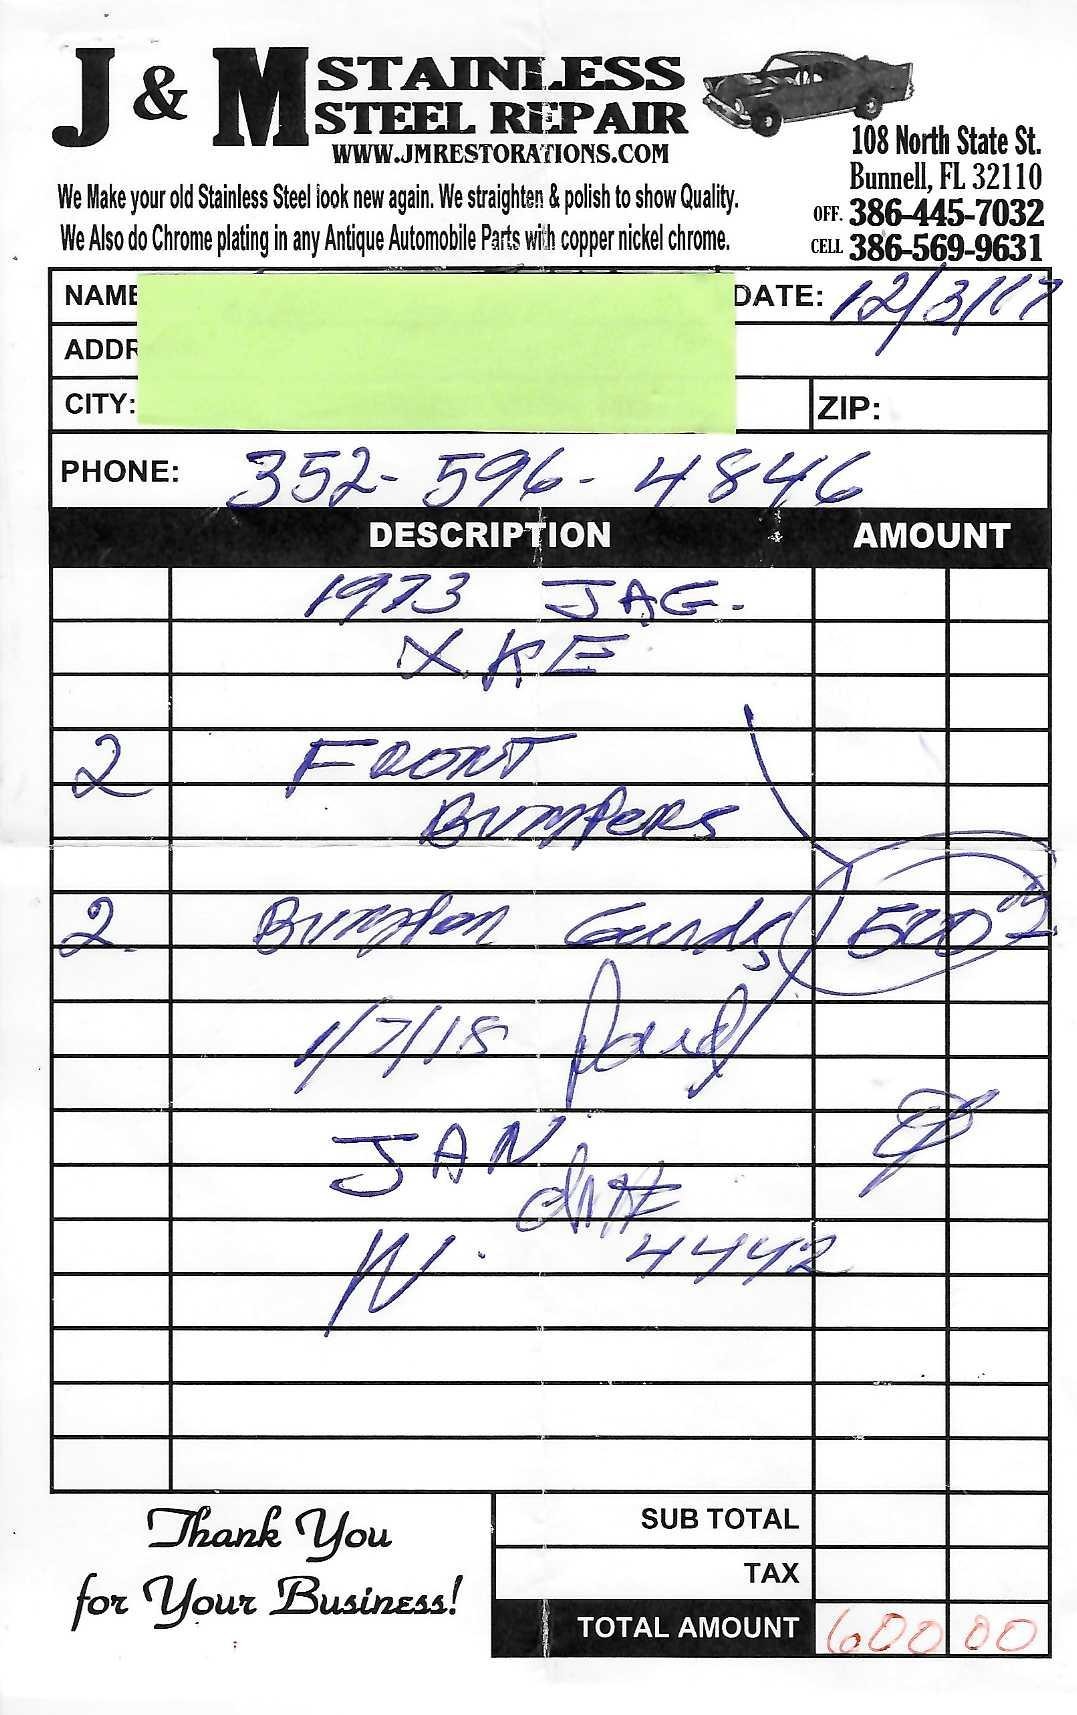 J & M STAINLESS
STEEL REPAIR
WWW.JMRESTORATIONS.COM
108 North State St.
Bunnell, FL 32110
OFF. 386-445-7032
CELL 386-569-9631
We Make your old Stainless Steel look new again. We straighten & polish to show Quality.
We Also do Chrome plating in any Antique Automobile Parts with copper nickel chrome.
NAME DATE: 12/3/17
ADDR
CITY: ZIP:
PHONE: 352-596-4846
DESCRIPTION AMOUNT
1973 JAG.
XKE
2 FRONT
BUMPERS
2. Bumper Guards 500 00
1/7/18 Paid
JAN
W. 4442
SUB TOTAL
TAX
TOTAL AMOUNT 600 00
Thank You
for Your Business!